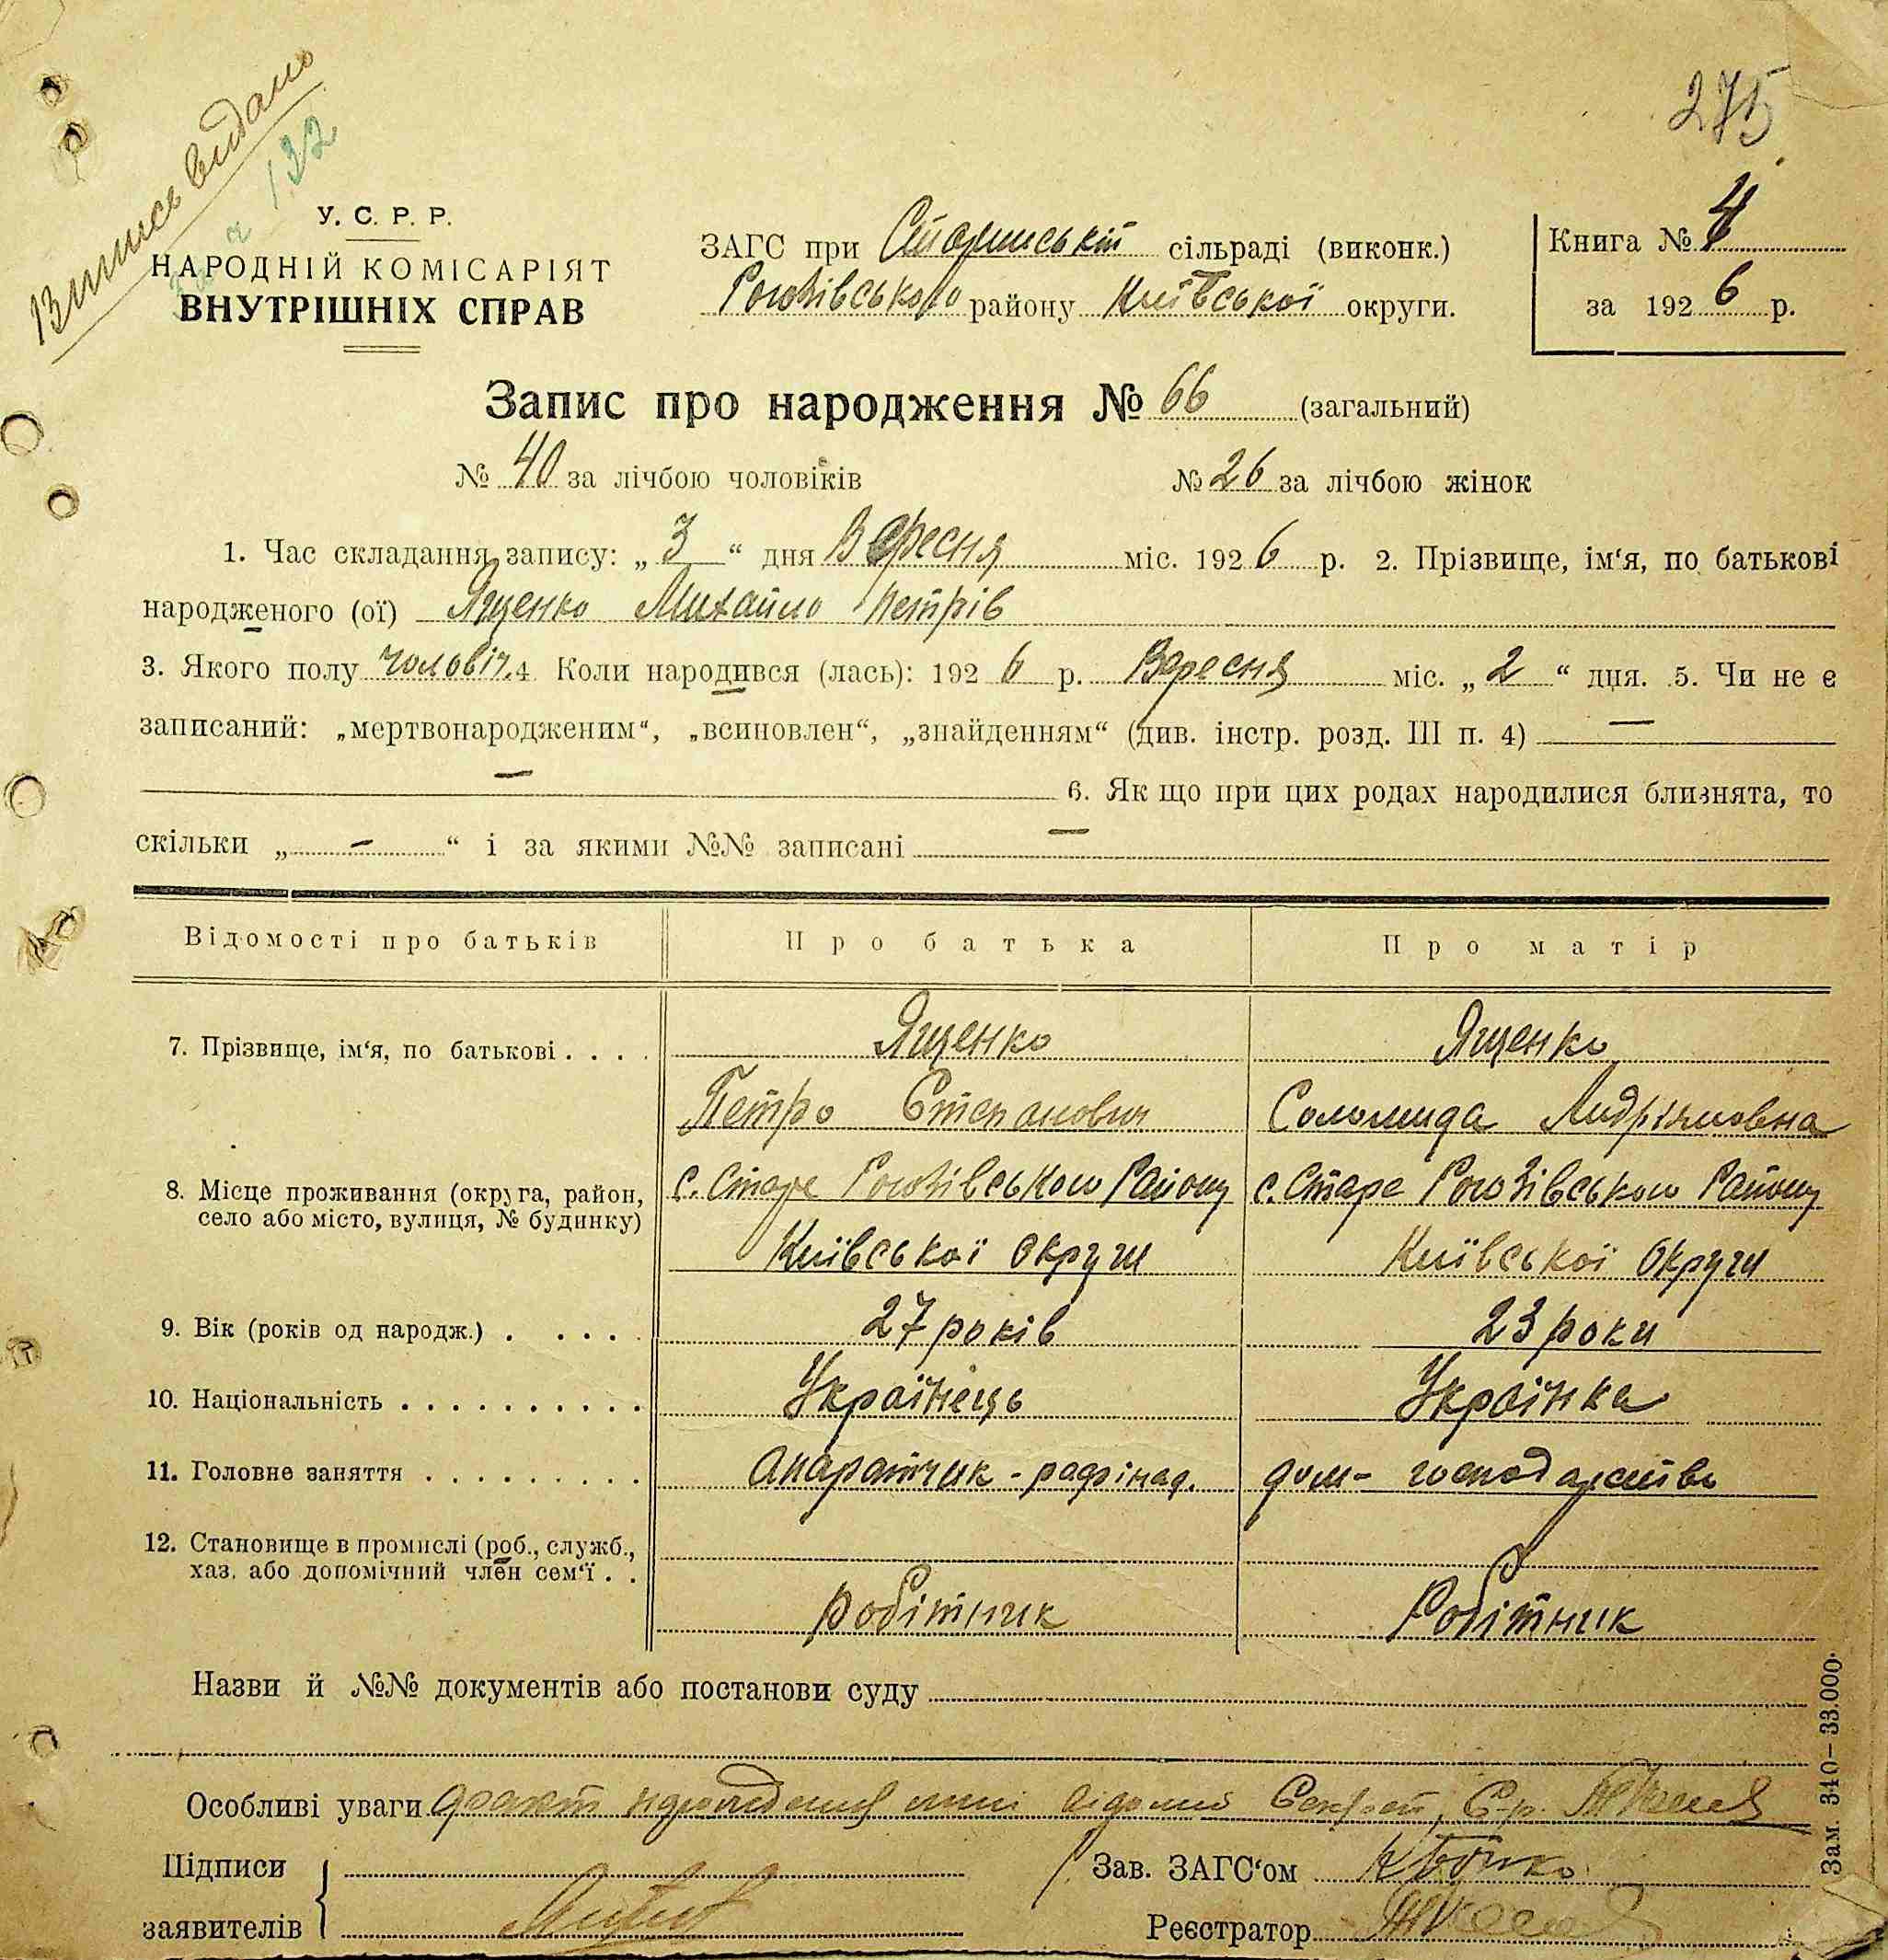 275
Випись видано
132
У. С. Р. Р.
НАРОДНІЙ КОМІСАРІЯТ
ВНУТРІШНІХ СПРАВ
ЗАГС при Старинській сільраді (виконк.)
Рогозівського району Київської округи.
Книга № 4
за 1926 р.
Запис про народження № 66 (загальний)
№ 40 за лічбою чоловіків № 26 за лічбою жінок
1. Час складання запису: „ 3 “ дня Вересня міс. 1926 р. 2. Прізвище, ім‘я, по батькові
народженого (ої) Ященко Михайло Петрів
3. Якого полу чоловіч. 4 Коли народився (лась): 1926 р. Вересня міс. „ 2 “ дня. 5. Чи не є
записаний: „мертвонародженим“, „всиновлен“, „знайденням“ (див. інстр. розд. III п. 4) —
— 6. Як що при цих родах народилися близнята, то
скільки „ - “ і за якими №№ записані —
Відомості про батьків Про батька Про матір
7. Прізвище, ім‘я, по батькові . . . . Ященко Ященко
Петро Степанович Соломида Андріяновна
8. Місце проживання (округа, район, с. Старе Рогозівського Району с. Старе Рогозівського Району
село або місто, вулиця, № будинку)
Київської округи Київської округи
9. Вік (років од народж.) . . . . . 27 років 23 роки
10. Національність . . . . . . . . . . Українець Українка
11. Головне заняття . . . . . . . . . Апаратчик - рафінад. дом- господарство
12. Становище в промислі (роб., служб.,
хаз. або допомічний член сем‘ї . .
робітник Робітник
Назви й №№ документів або постанови суду
Особливі уваги факт народження мені відомий Секрет. С-р.
Підписи Зав. ЗАГС‘ом
заявителів Реєстратор
Зам. 340—33.000.